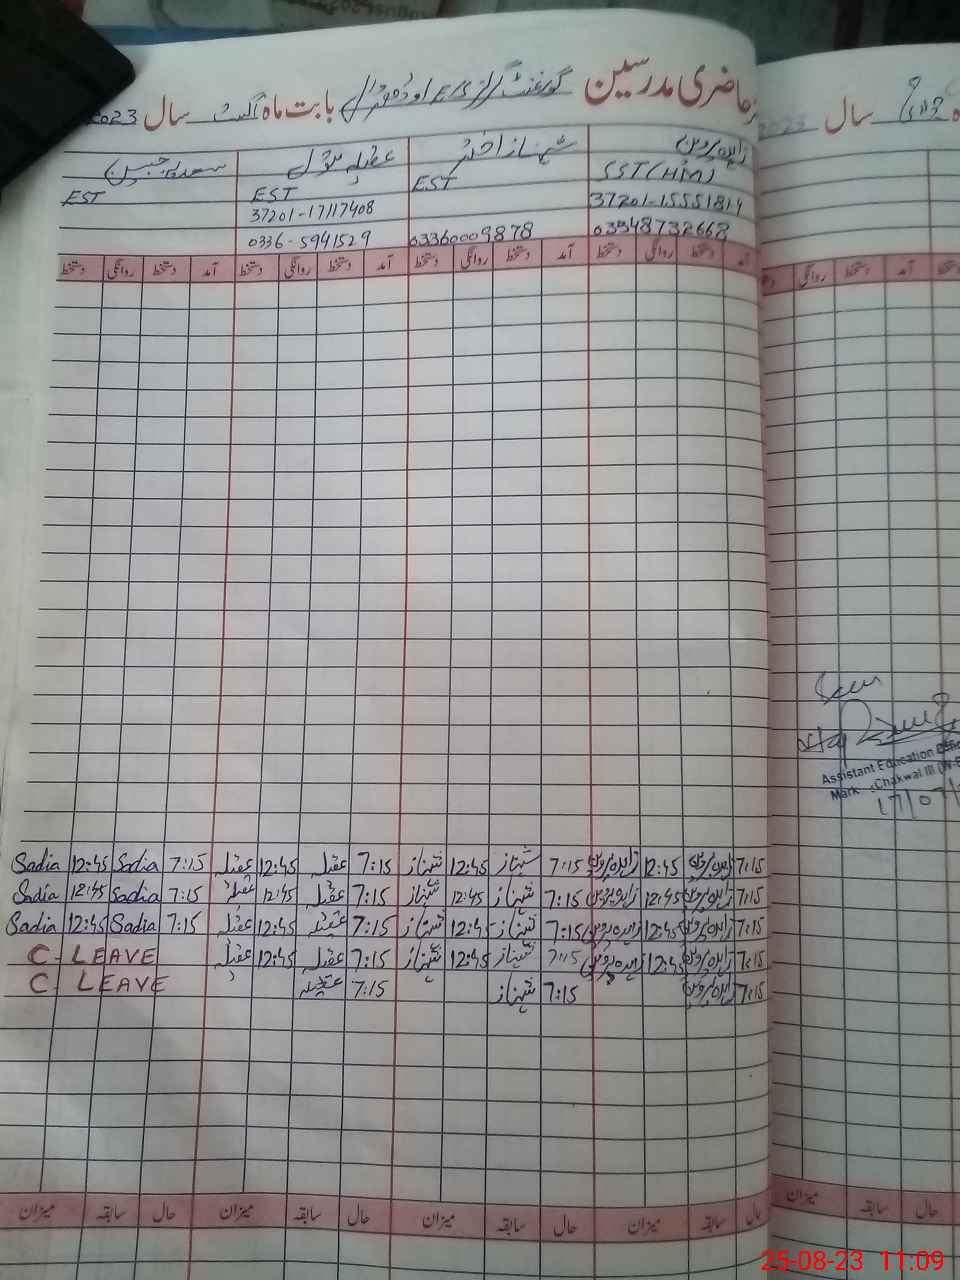 حاضری مدرسین گورنمنٹ گرلز E/S اوڈھروال بابت ماہ اگست سال 2023
زاہدہ پروین شہناز اختر عقیلہ بتول سعدیہ جبین
SST(HM) EST EST EST
37201-15551814 37201-17117408
03348732668 03360009878 0336-5941529
آمد دستخط روانگی دستخط آمد دستخط روانگی دستخط آمد دستخط روانگی دستخط آمد دستخط روانگی دستخط
7:15 زاہدہ پروین 12:45 زاہدہ پروین 7:15 شہناز 12:45 شہناز 7:15 عقیلہ 12:45 عقیلہ 7:15 Sadia 12:45 Sadia
7:15 زاہدہ پروین 12:45 زاہدہ پروین 7:15 شہناز 12:45 شہناز 7:15 عقیلہ 12:45 عقیلہ 7:15 Sadia 12:45 Sadia
7:15 زاہدہ پروین 12:45 زاہدہ پروین 7:15 شہناز 12:45 شہناز 7:15 عقیلہ 12:45 عقیلہ 7:15 Sadia 12:45 Sadia
7:15 زاہدہ پروین 12:45 زاہدہ پروین 7:15 شہناز 12:45 شہناز 7:15 عقیلہ 12:45 عقیلہ C. LEAVE
7:15 زاہدہ پروین 7:15 شہناز 7:15 عقیلہ C. LEAVE
حال سابقہ میزان حال سابقہ میزان حال سابقہ میزان حال سابقہ میزان
جولائی سال 2023
دستخط آمد دستخط روانگی
Seen
Assistant Education
Mark :Chakwal III (W-E
17/07/
حال سابقہ میزان
25-08-23 11:09